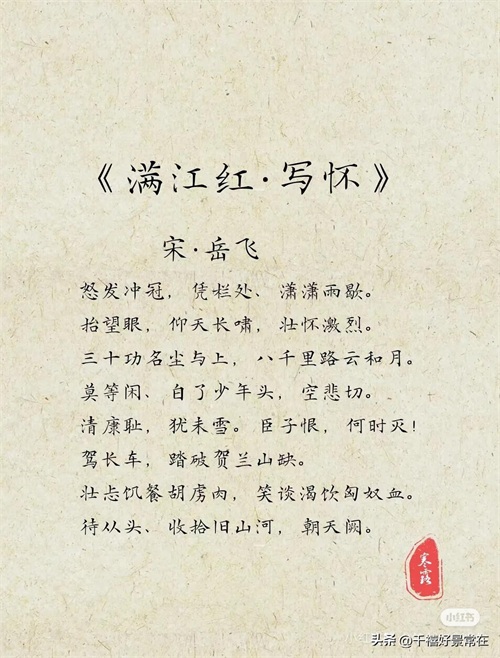 《满江红·写怀》
宋·岳飞
怒发冲冠，凭栏处、潇潇雨歇。
抬望眼，仰天长啸，壮怀激烈。
三十功名尘与上，八千里路云和月。
莫等闲、白了少年头，空悲切。
清康耻，犹未雪。臣子恨，何时灭！
驾长车，踏破贺兰山缺。
壮忐饥餐胡虏肉，笑谈渴饮匈奴血。
待从头、收拾旧山河，朝天阙。
寒露
小红书
头条 @千禧好景常在